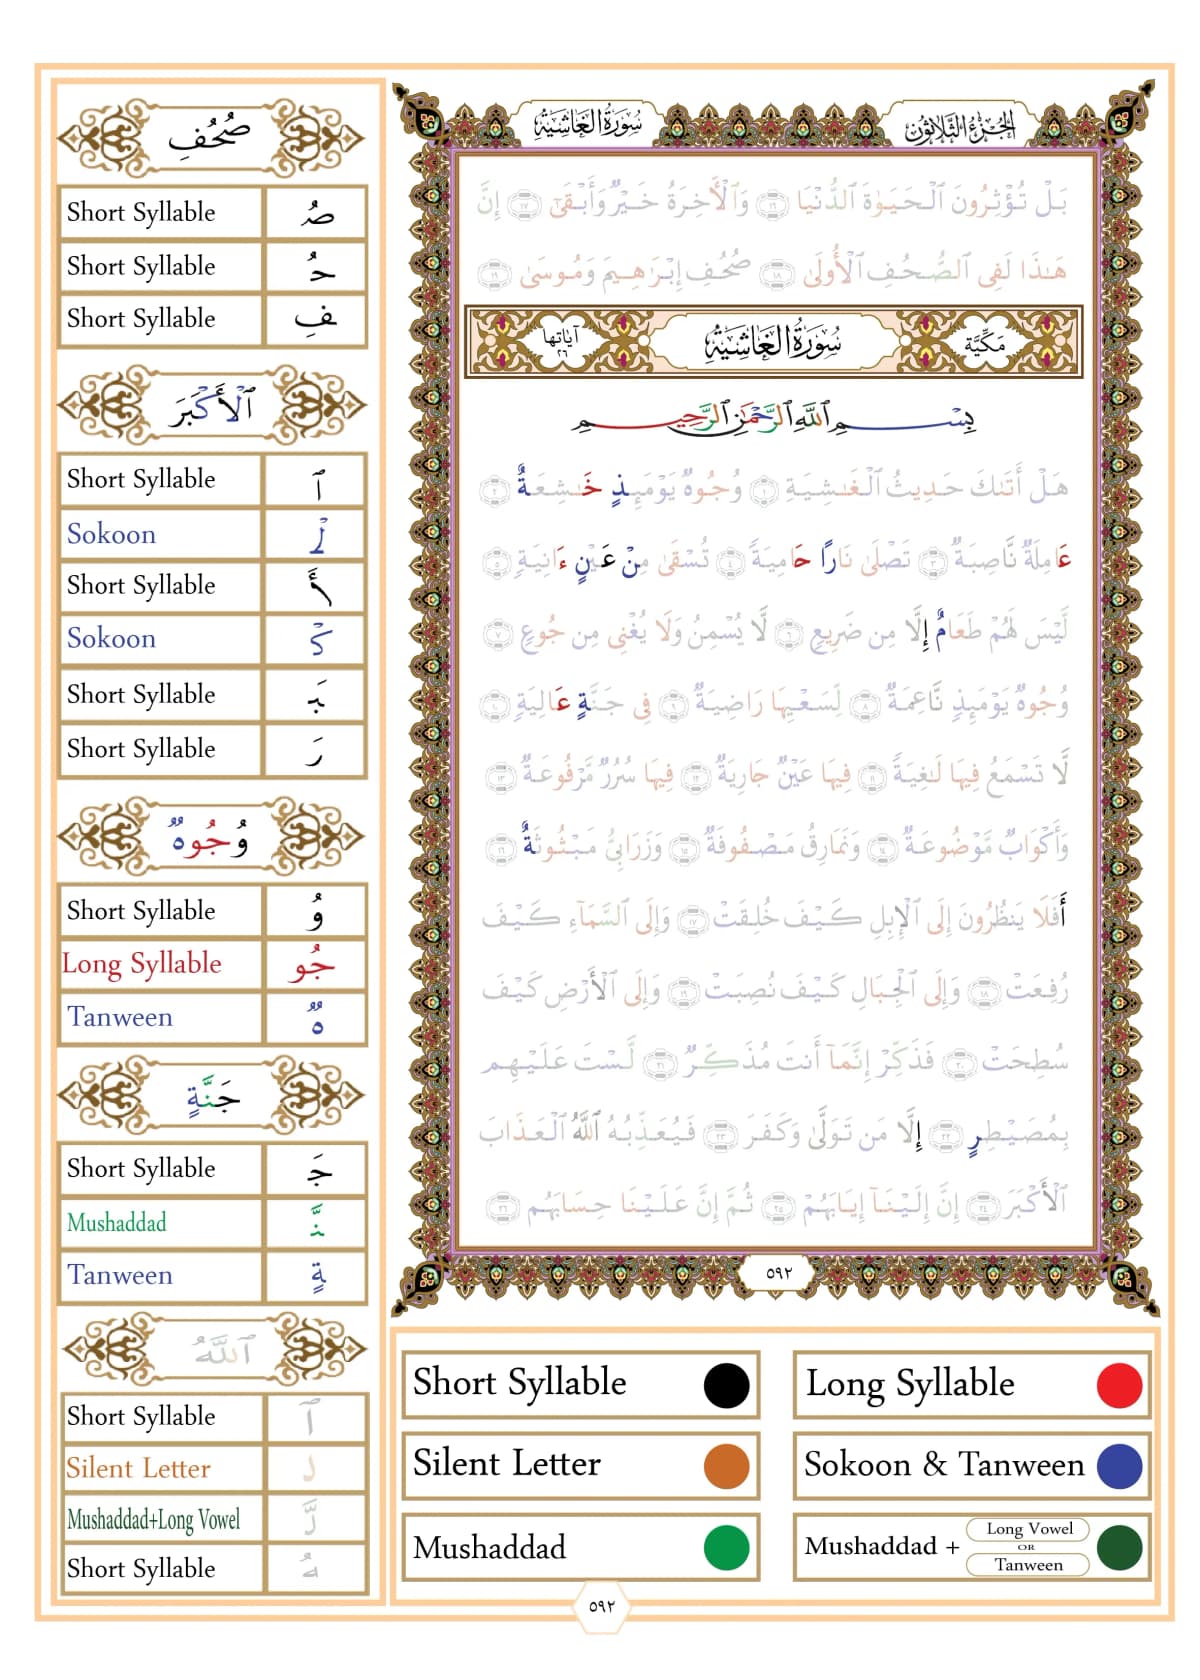 الجزء الثلاثون
سورة الغاشية
بَلْ تُؤْثِرُونَ ٱلْحَيَوٰةَ ٱلدُّنْيَا ١٦ وَٱلْأَخِرَةُ خَيْرٌ وَأَبْقَىٰٓ ١٧ إِنَّ
هَٰذَا لَفِى ٱلصُّحُفِ ٱلْأُولَىٰ ١٨ صُحُفِ إِبْرَٰهِيمَ وَمُوسَىٰ ١٩
مَكِّيَّة
سُورَةُ الغَاشِيَةِ
آيَاتها ٢٦
بِسْمِ ٱللَّهِ ٱلرَّحْمَٰنِ ٱلرَّحِيمِ
هَلْ أَتَىٰكَ حَدِيثُ ٱلْغَٰشِيَةِ ١ وُجُوهٌ يَوْمَئِذٍ خَٰشِعَةٌ ٢
عَامِلَةٌ نَّاصِبَةٌ ٣ تَصْلَىٰ نَارًا حَامِيَةً ٤ تُسْقَىٰ مِنْ عَيْنٍ ءَانِيَةٍ ٥
لَّيْسَ لَهُمْ طَعَامٌ إِلَّا مِن ضَرِيعٍ ٦ لَّا يُسْمِنُ وَلَا يُغْنِى مِن جُوعٍ ٧
وُجُوهٌ يَوْمَئِذٍ نَّاعِمَةٌ ٨ لِّسَعْيِهَا رَاضِيَةٌ ٩ فِى جَنَّةٍ عَالِيَةٍ ١٠
لَّا تَسْمَعُ فِيهَا لَٰغِيَةً ١١ فِيهَا عَيْنٌ جَارِيَةٌ ١٢ فِيهَا سُرُرٌ مَّرْفُوعَةٌ ١٣
وَأَكْوَابٌ مَّوْضُوعَةٌ ١٤ وَنَمَارِقُ مَصْفُوفَةٌ ١٥ وَزَرَابِىُّ مَبْثُوثَةٌ ١٦
أَفَلَا يَنظُرُونَ إِلَى ٱلْإِبِلِ كَيْفَ خُلِقَتْ ١٧ وَإِلَى ٱلسَّمَآءِ كَيْفَ
رُفِعَتْ ١٨ وَإِلَى ٱلْجِبَالِ كَيْفَ نُصِبَتْ ١٩ وَإِلَى ٱلْأَرْضِ كَيْفَ
سُطِحَتْ ٢٠ فَذَكِّرْ إِنَّمَآ أَنتَ مُذَكِّرٌ ٢١ لَّسْتَ عَلَيْهِم
بِمُصَيْطِرٍ ٢٢ إِلَّا مَن تَوَلَّىٰ وَكَفَرَ ٢٣ فَيُعَذِّبُهُ ٱللَّهُ ٱلْعَذَابَ
ٱلْأَكْبَرَ ٢٤ إِنَّ إِلَيْنَآ إِيَابَهُمْ ٢٥ ثُمَّ إِنَّ عَلَيْنَا حِسَابَهُم ٢٦
٥٩٢
صُحُفِ
Short Syllable صُ
Short Syllable حُ
Short Syllable فِ
ٱلْأَكْبَرَ
Short Syllable ٱ
Sokoon لْ
Short Syllable أَ
Sokoon كْ
Short Syllable بَ
Short Syllable رَ
وُجُوهٌ
Short Syllable وُ
Long Syllable جُو
Tanween هٌ
جَنَّةٍ
Short Syllable جَ
Mushaddad نَّ
Tanween ةٍ
ٱللَّهُ
Short Syllable ٱ
Silent Letter ل
Mushaddad+Long Vowel لَّ
Short Syllable هُ
Short Syllable
Long Syllable
Silent Letter
Sokoon & Tanween
Mushaddad
Mushaddad + Long Vowel OR Tanween
٥٩٢